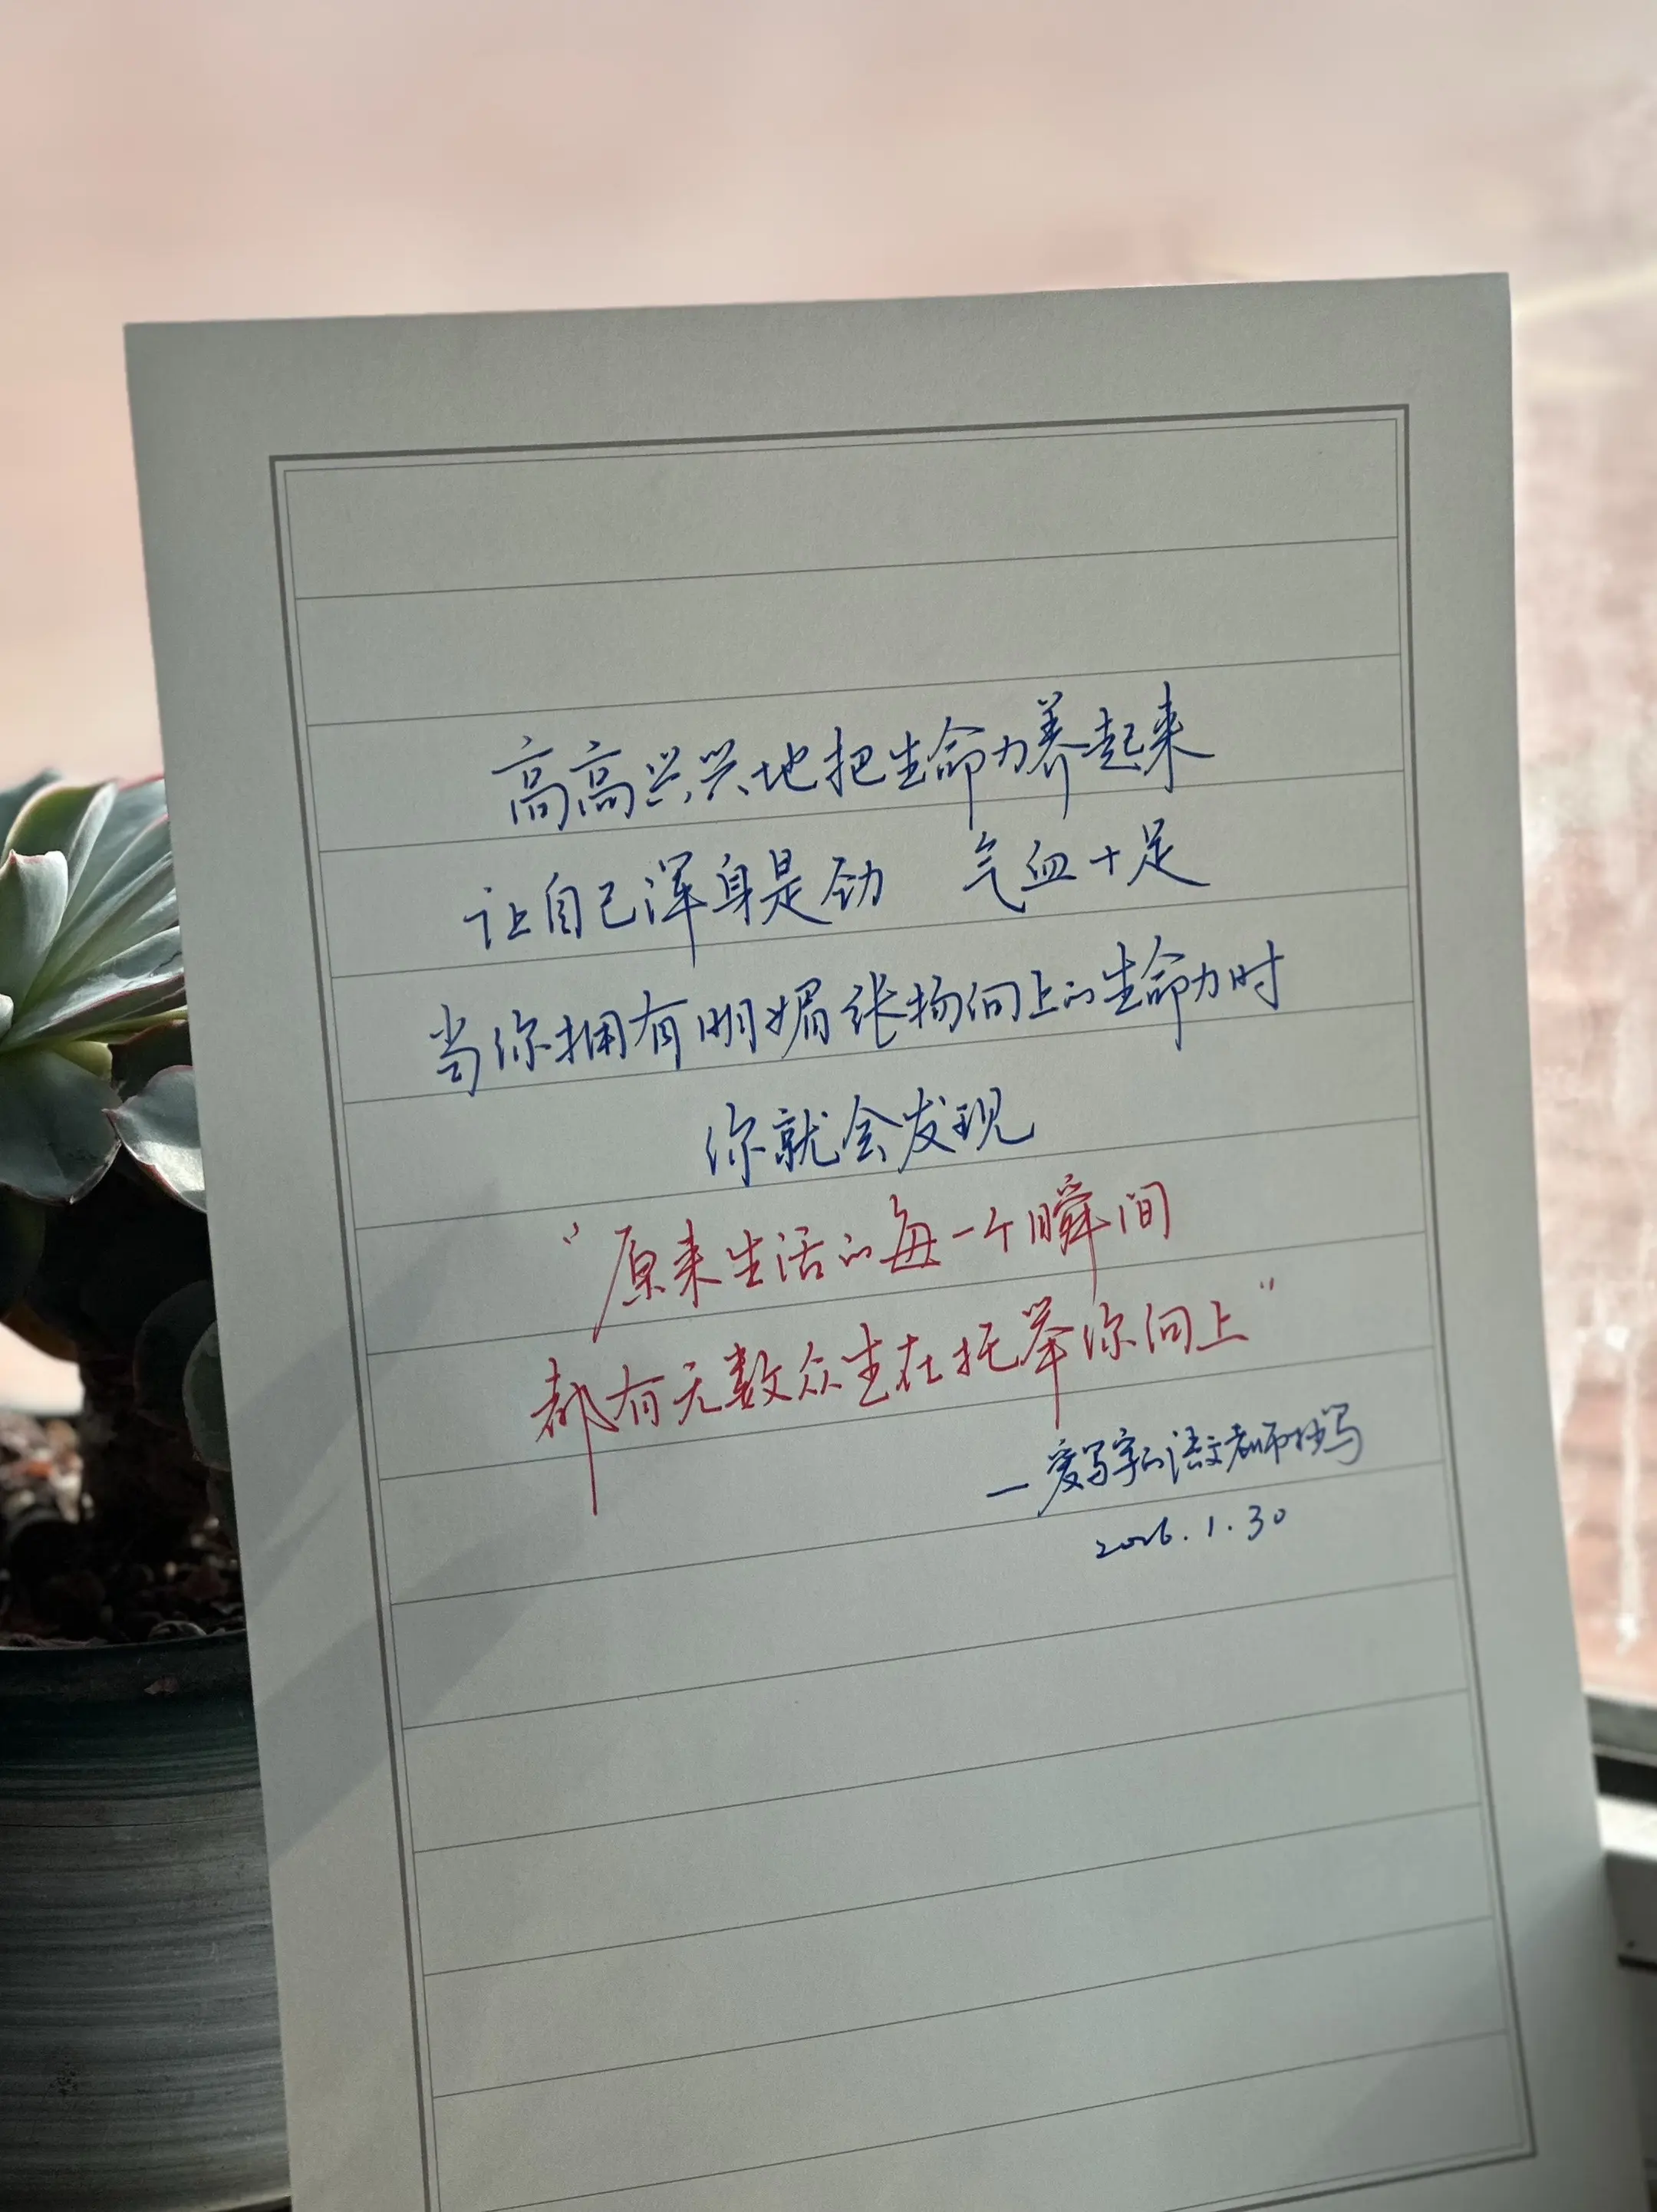 高高兴兴地把生命力养起来
让自己浑身是劲 气血十足
当你拥有明媚张扬向上的生命力时
你就会发现
“原来生活的每一个瞬间
都有无数众生在托举你向上”
—爱写字的语文老师抄写
2026.1.30